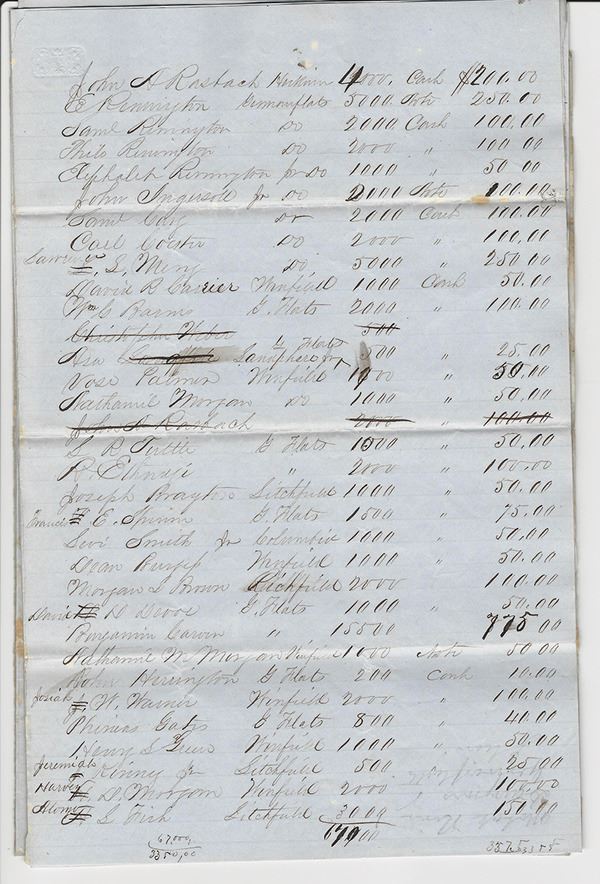 John A Rasbach Herkimer 4000. Cash $200.00
E Remington Germanflats 5000 Note 250.00
Saml Remington Do 2000 Cash 100.00
Philo Remington Do 2000 " 100.00
Eliphalet Remington Jr Do 1000 " 50.00
John Ingersoll Jr Do 2000 Note 100.00
Saml Do 2000 Cash 100.00
Carl Do 2000 " 100.00
Lawrence L. S. Do 5000 " 250.00
David B Carrier Winfield 1000 Cash 50.00
Wm C Barns G. Flats 2000 " 100.00
Christopher 500
G Flats
Asa 500 " 25.00
Vose Palmer Winfield 1000 " 50.00
Nathaniel Morgan Do 1000 " 50.00
John A Rasbach 2000 " 100.00
S R Tuttle G Flats 1000 " 50.00
R. " 2000 " 100.00
Joseph Brayton Litchfield 1000 " 50.00
E. G. Flats 1500 " 75.00
Levi Smith Jr Columbia 1000 " 50.00
Dean Burgess Winfield 1000 " 50.00
Morgan L Brown 2000 " 100.00
David D G. Flats 1000 " 50.00
Benjamin Carver " 15500 775.00
Nathaniel M Morgan Winfield 1000 Note 50.00
John Herrington G Flats 200 Cash 10.00
Josiah W. Warner Winfield 2000 " 100.00
Phineas Gates G Flats 800 " 40.00
Henry L Winfield 1000 " 50.00
Jeremiah Kinny Jr Litchfield 500 " 25.00
Harvey D. Morgan Winfield 2000 " 100.00
L Fish Litchfield 3000 150.00
67900
67000
3350,00